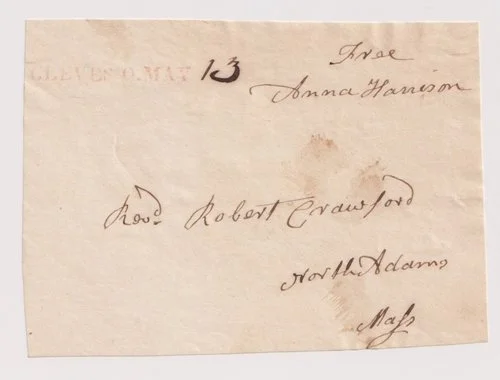 CLEVES O. MAY 13
Free
Anna Harrison
Revd. Robert Crawford
North Adams
Mass